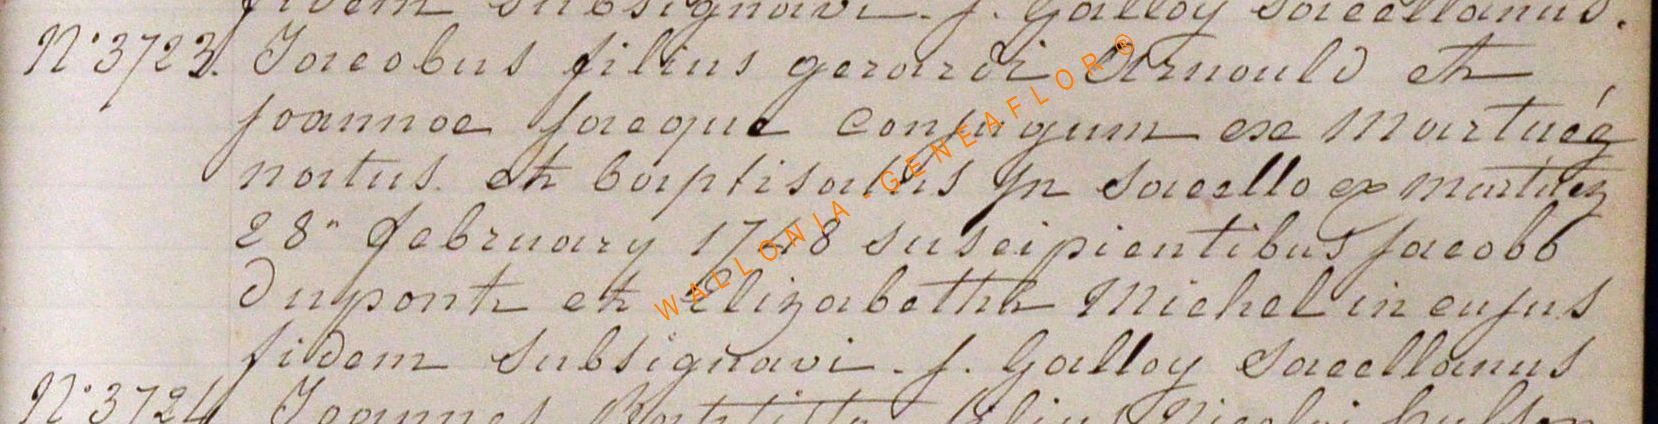 fidem subsignavi. J. Galloy Sacellanus.
N° 3723. Jacobus filius gerardi Arnould et
joannae jacque conjugum ex Martuéz
natus et baptisatus in sacello ex martuéz
28a february 17 8 suscipientibus jacobo
Dupont et Elizabetha Michel in cujus
fidem subsignavi. J. Galloy Sacellanus
N° 3724 Joannes Baptista filius Nicolai
WALLONIA - GENEAFLOR ®